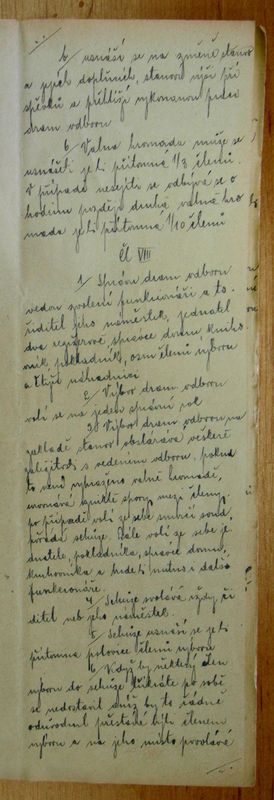 b/ usnáší se na změně stanov
a jejich doplňcích, stanoví výši pří
spěvků a přihlíží vykonanou práci
dram odboru
6/ Valna hromada může se
usnášeti je-li přítomna 1/3 členů.
V případě nesejíti se odbývá se o
hodinu později druhá valná hro
mada je-li přítomná 1/10 členů
čl VIII
1/ Správu dram odboru
vedou zvolení funkcionáři a to.
ředitel jeho náměstek, jednatel
dva režiserové, správce domu knihov
ník pokladník, osm členů výboru
a čtyři náhradníci
2/ Výbor dram odboru
volí se na jeden správní rok
3/ Výbor dram odboru na
základě stanov obstarává veškeré
záležitosti s vedením odboru. pokud
to není vyhraženo valné hromadě,
urovnává vzniklé spory mezi členy,
po případě volí ze sebe smírčí soud,
pořádá schůze. Dále volí ze sebe je
dnatele, pokladníka, správce domu,
knihovníka a hudeb
funkcionáře.
4/ Schůze svolává vždy ře
ditel neb jeho náměstek.
5/ Schůze usnáší se je-li
přítomna polovice členů výboru
6/ Když by některý člen
výboru do schůze třikráte po sobě
se nedostavil aniž by to řádně
odůvodnil přestává býti členem
výboru a na jeho místo povolává